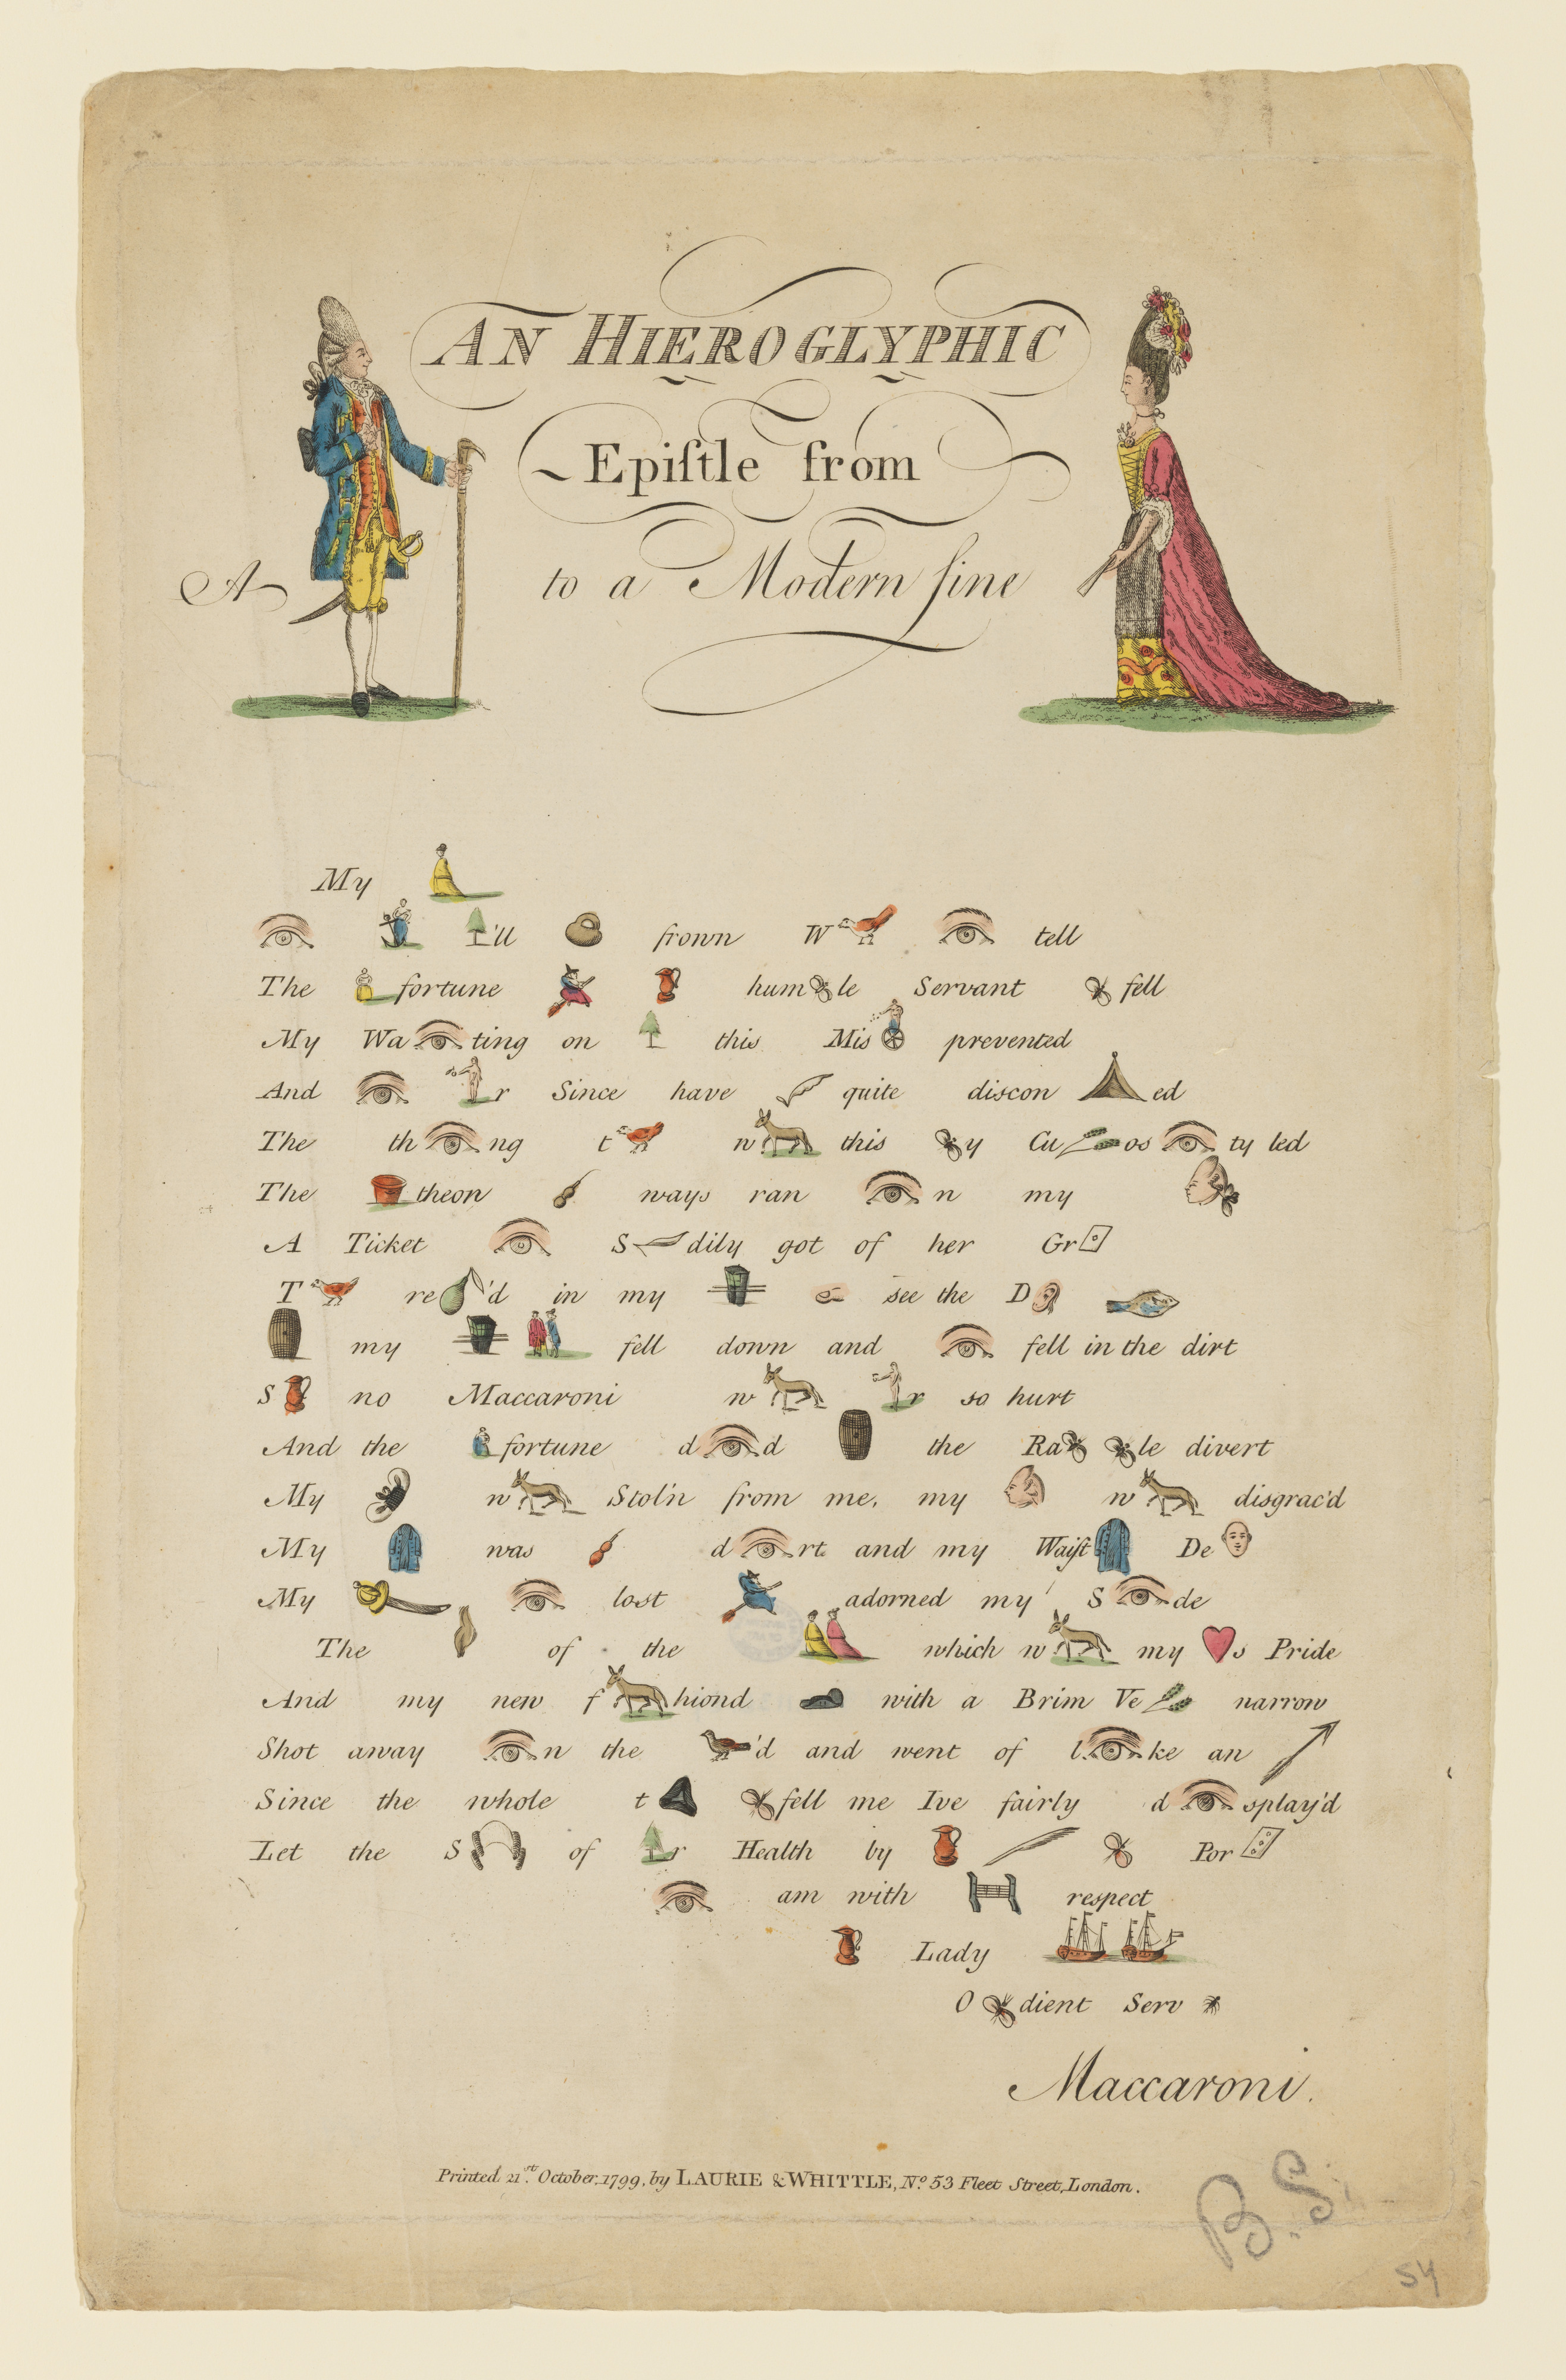 AN HIEROGLYPHIC
Epiſtle from
A to a Modern fine
My
'll frown W tell
The fortune hum le Servant fell
My Wa ting on this Mis prevented
And r Since have quite discon ed
The th ng t w this y Cu os ty led
The theon ways ran n my
A Ticket S dily got of her Gr
T re 'd in my see the D
my fell down and fell in the dirt
S no Maccaroni w r so hurt
And the fortune d d the Ra le divert
My w Stol'n from me, my w disgrac'd
My was d rt and my Waiſt De
My lost adorned my S de
The of the which w my s Pride
And my new f hiond with a Brim Ve narrow
Shot away n the 'd and went of l ke an
Since the whole t fell me Ive fairly d splay'd
Let the S of r Health by Por
am with respect
Lady
O dient Serv
Maccaroni.
Printed 21st October, 1799, by LAURIE & WHITTLE, No. 53 Fleet Street, London.
B.S.
54